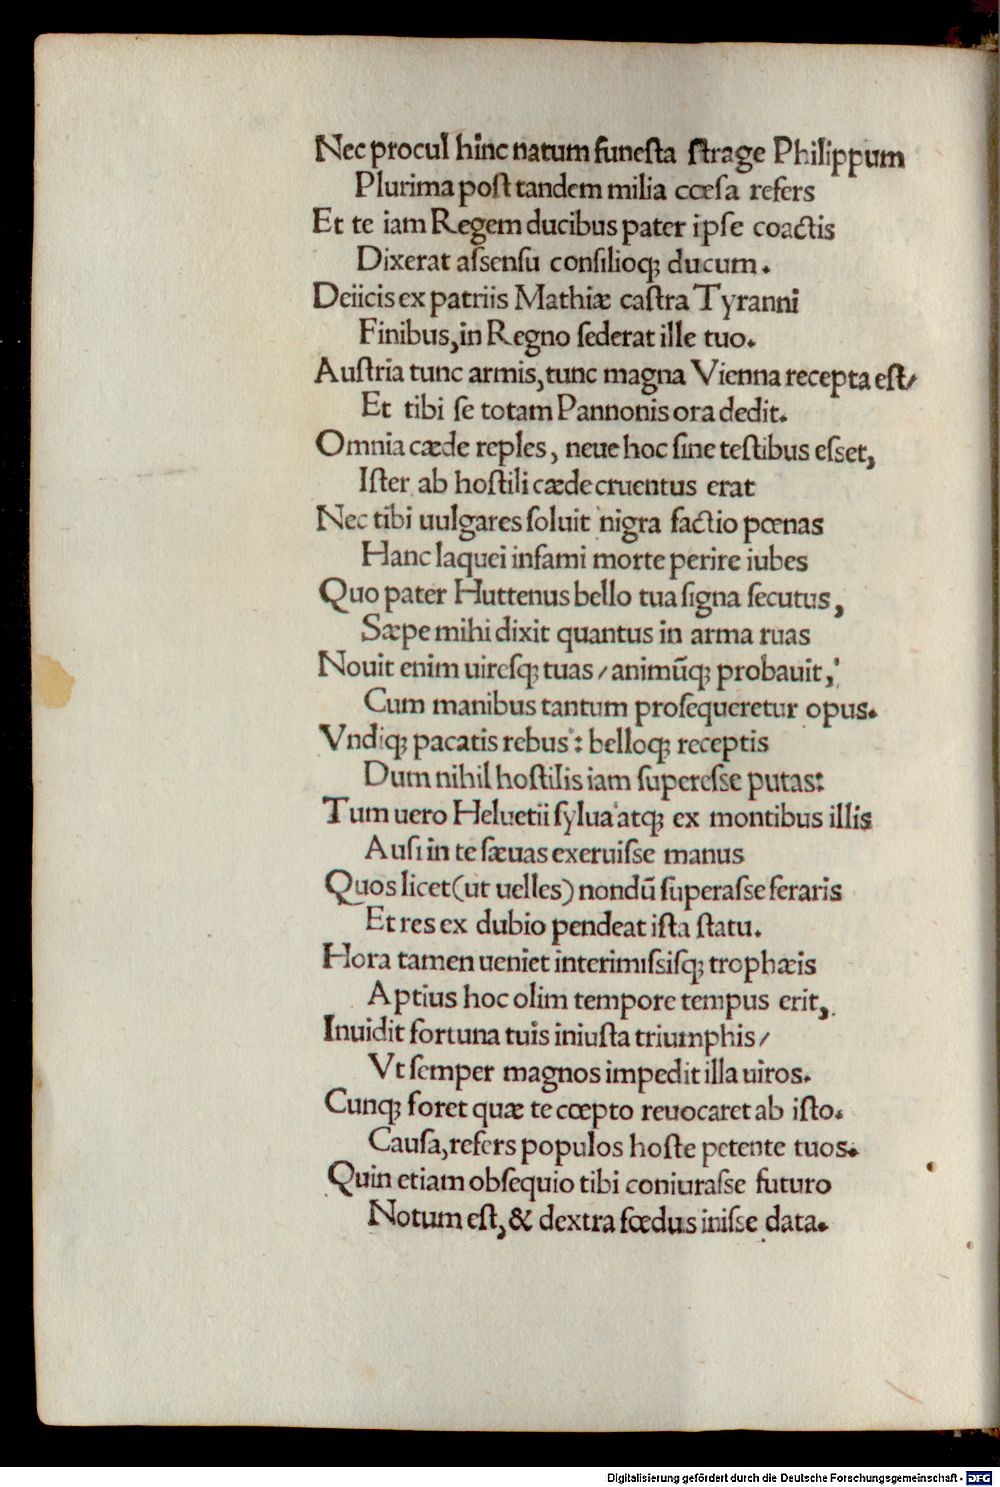 Nec procul hinc natum funeſta ſtrage Philippum
Plurima poſt tandem milia cœſa refers
Et te iam Regem ducibus pater ipſe coactis
Dixerat aſſenſu conſilioq; ducum.
Deiicis ex patriis Mathiæ caſtra Tyranni
Finibus, in Regno ſederat ille tuo.
Auſtria tunc armis, tunc magna Vienna recepta eſt/
Et tibi ſe totam Pannonis ora dedit.
Omnia cæde reples, neue hoc ſine teſtibus eſſet,
Iſter ab hoſtili cæde cruentus erat
Nec tibi uulgares ſoluit nigra factio pœnas
Hanc laquei infami morte perire iubes
Quo pater Huttenus bello tua ſigna ſecutus,
Sæpe mihi dixit quantus in arma ruas
Nouit enim uireſq; tuas / animūq; probauit,
Cum manibus tantum proſequeretur opus.
Vndiq; pacatis rebus: belloq; receptis
Dum nihil hoſtilis iam ſupereſſe putas:
Tum uero Heluetii ſylua atq; ex montibus illis
Auſi in te ſæuas exeruiſſe manus
Quos licet (ut uelles) nondū ſuperaſſe feraris
Et res ex dubio pendeat iſta ſtatu.
Hora tamen ueniet interimiſsiſq; trophæis
Aptius hoc olim tempore tempus erit,
Inuidit fortuna tuis iniuſta triumphis/
Vt ſemper magnos impedit illa uiros.
Cunq; foret quæ te cœpto reuocaret ab iſto.
Cauſa, refers populos hoſte petente tuos.
Quin etiam obſequio tibi coniuraſſe futuro
Notum eſt, & dextra fœdus iniſſe data.
Digitalisierung gefördert durch die Deutsche Forschungsgemeinschaft - DFG